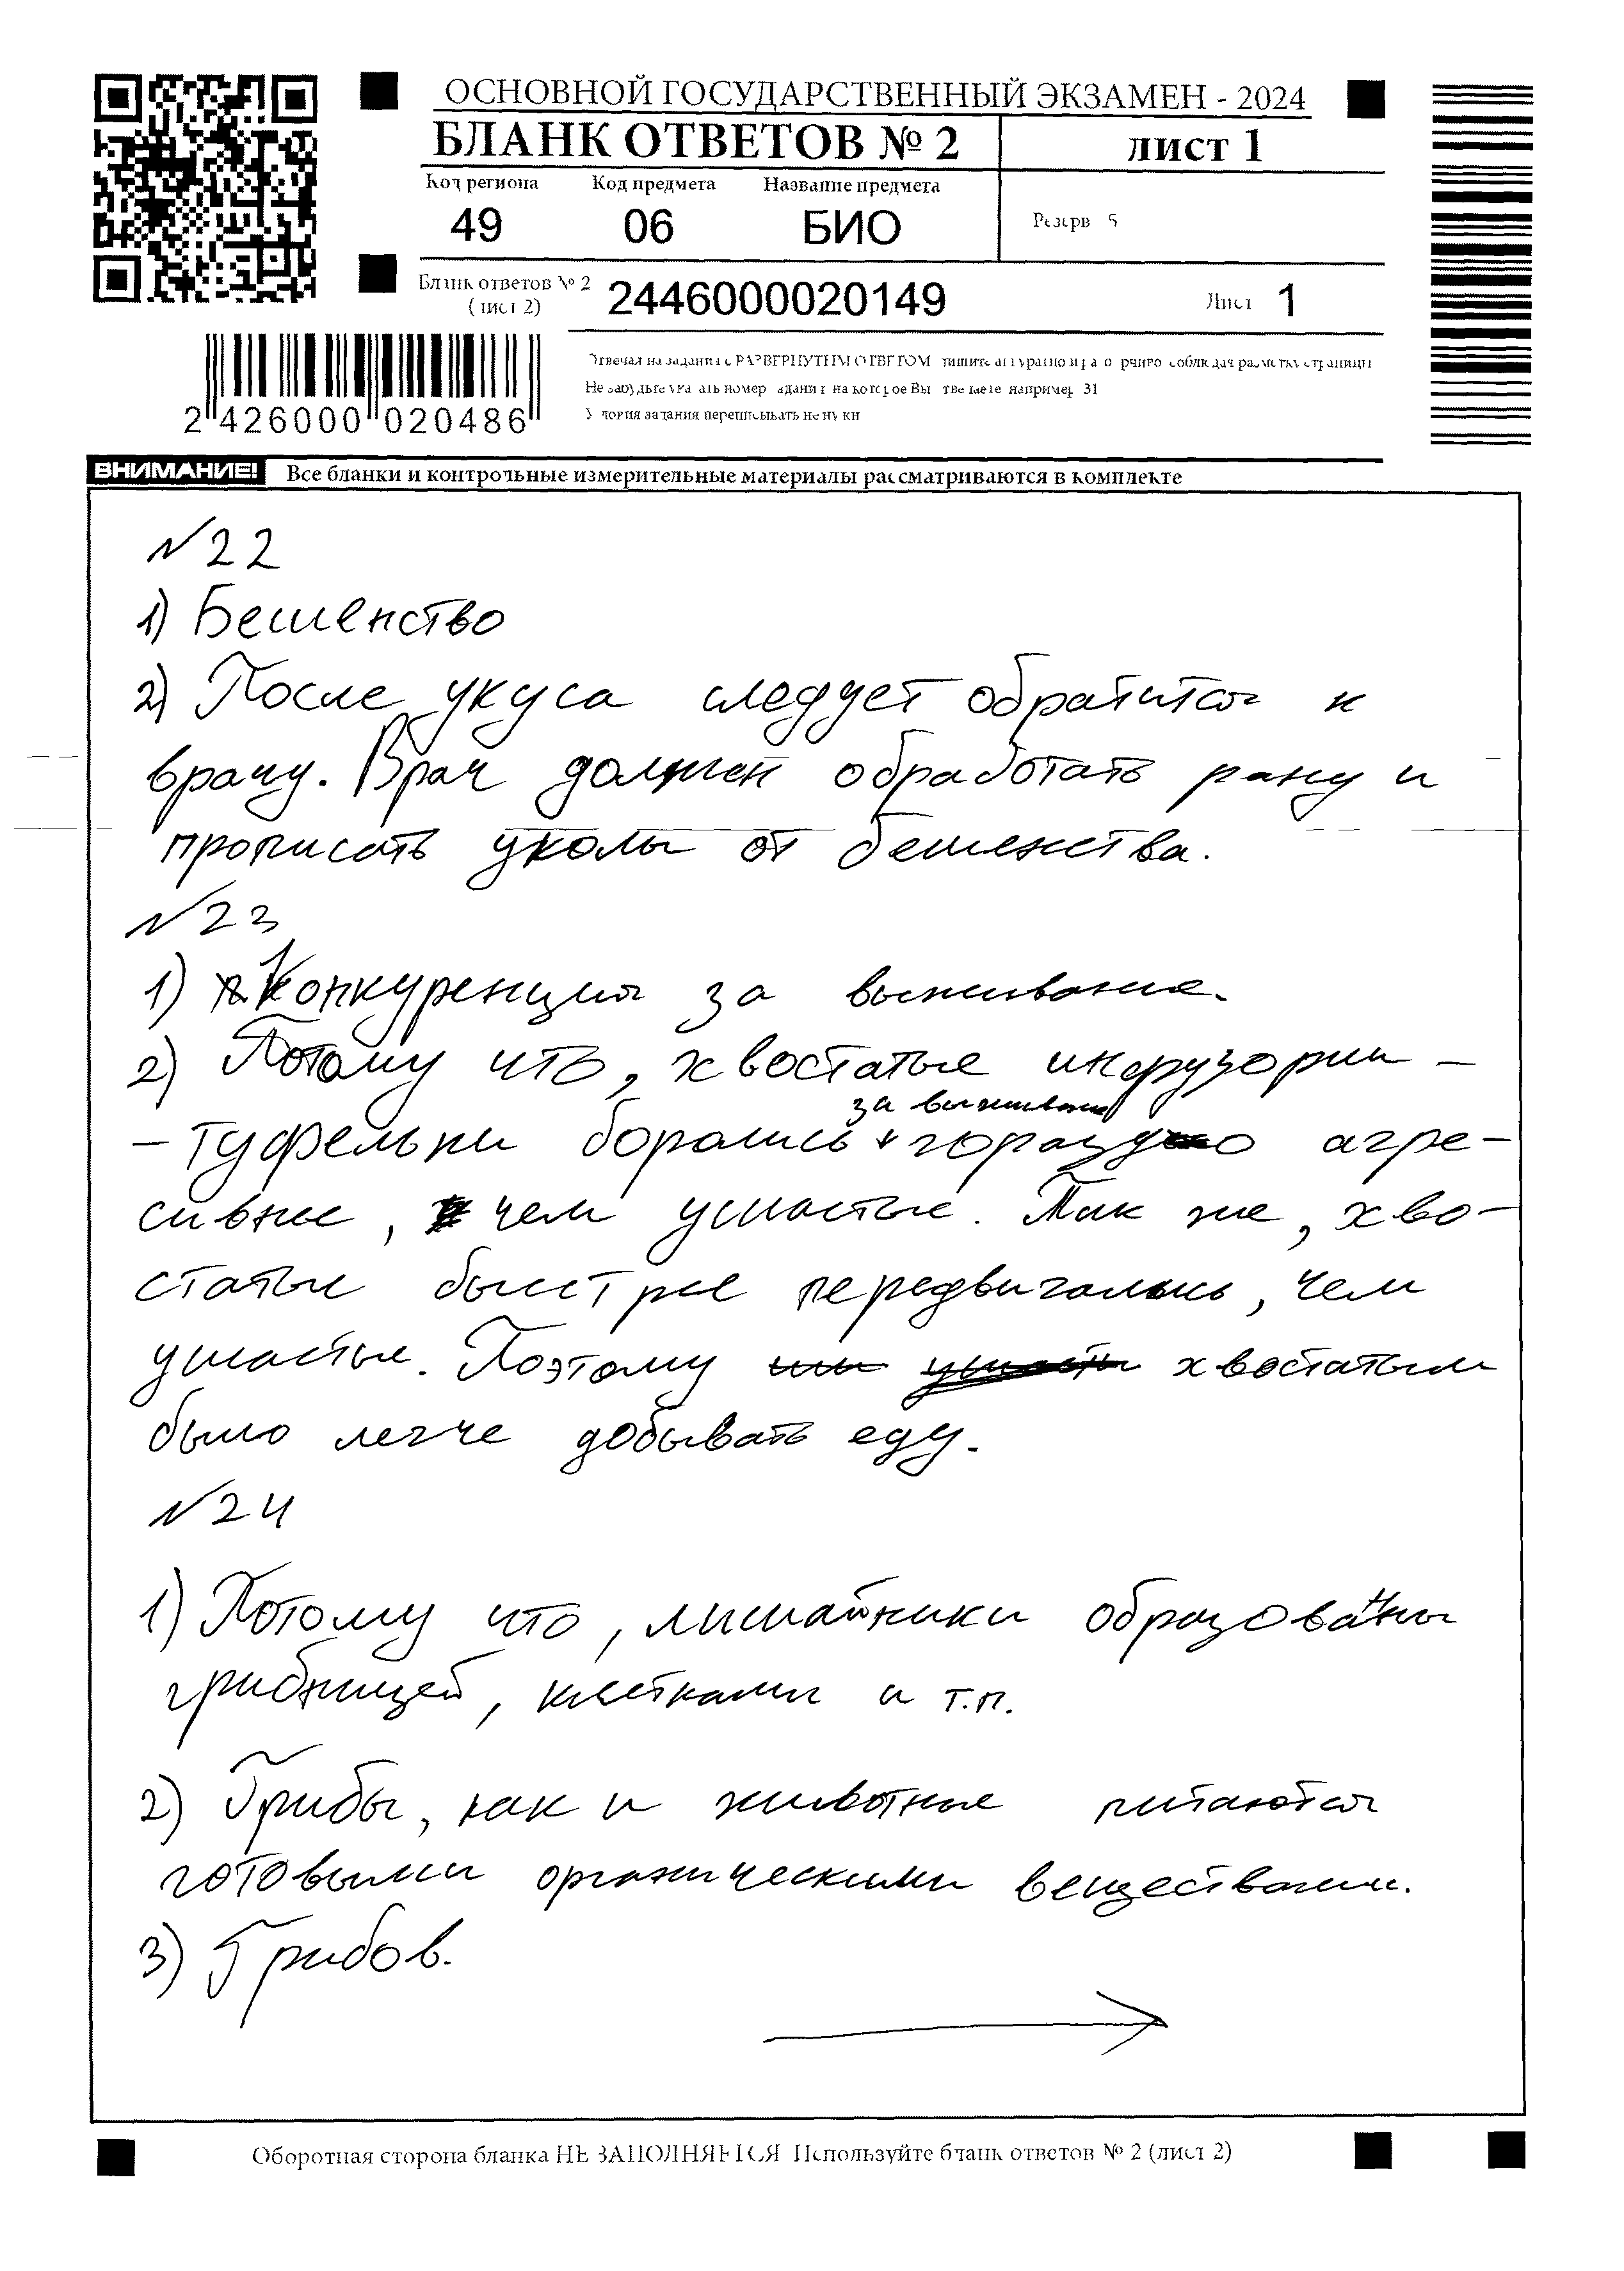 ОСНОВНОЙ ГОСУДАРСТВЕННЫЙ ЭКЗАМЕН - 2024
БЛАНК ОТВЕТОВ № 2
ЛИСТ 1
Код региона Код предмета Название предмета
49 06 БИО
Резерв 5
Бланк ответов № 2
(лист 2)
2446000020149
Лист 1
Отвечая на задания с РАЗВЕРНУТЫМ ОТВЕТОМ пишите аккуратно и разборчиво соблюдая разметку страницы
Не забудьте указать номер задания на которое Вы отвечаете например 31
Условия задания переписывать не нужно
2 426000 020486
ВНИМАНИЕ! Все бланки и контрольные измерительные материалы рассматриваются в комплекте
№22
1) Бешенство
2) После укуса следует обратится к
врачу. Врач должен обработать рану и
прописать уколы от бешенства.
№23
1) Конкуренция за выживание.
2) Потому что, хвостатые инфузории -
за выживание
- туфельки боролись гораздо агре-
сивнее, чем ушастые. Так же, хво-
статые быстрее передвигались, чем
ушастые. Поэтому хвостатым
было легче добывать еду.
№24
1) Потому что, лишайники образованы
грибницей, клетками и т.п.
2) Грибы, как и животные питаются
готовыми органическими веществами.
3) Грибов.
Оборотная сторона бланка НЕ ЗАПОЛНЯЕТСЯ Используйте бланк ответов № 2 (лист 2)